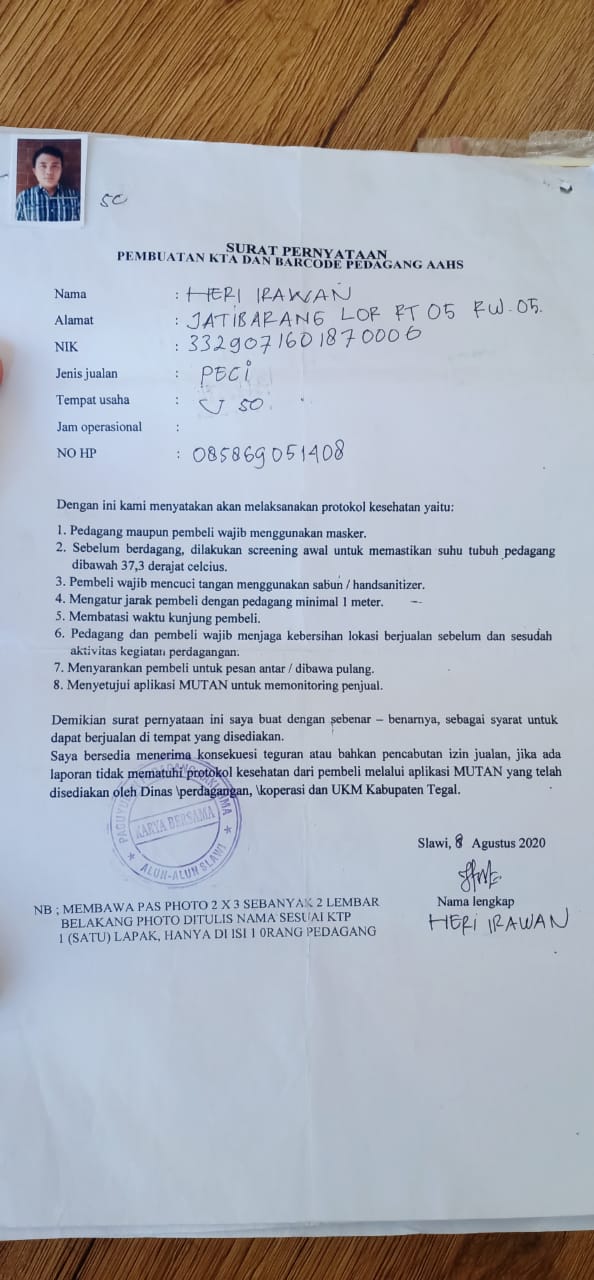 50
SURAT PERNYATAAN
PEMBUATAN KTA DAN BARCODE PEDAGANG AAHS
Nama : HERI IRAWAN
Alamat : JATIBARANG LOR RT 05 RW.05.
NIK : 3329071601870006
Jenis jualan : PECI
Tempat usaha : U 50
Jam operasional :
NO HP : 085869051408
Dengan ini kami menyatakan akan melaksanakan protokol kesehatan yaitu:
1. Pedagang maupun pembeli wajib menggunakan masker.
2. Sebelum berdagang, dilakukan screening awal untuk memastikan suhu tubuh pedagang
dibawah 37,3 derajat celcius.
3. Pembeli wajib mencuci tangan menggunakan sabun / handsanitizer.
4. Mengatur jarak pembeli dengan pedagang minimal 1 meter.
5. Membatasi waktu kunjung pembeli.
6. Pedagang dan pembeli wajib menjaga kebersihan lokasi berjualan sebelum dan sesudah
aktivitas kegiatan perdagangan.
7. Menyarankan pembeli untuk pesan antar / dibawa pulang.
8. Menyetujui aplikasi MUTAN untuk memonitoring penjual.
Demikian surat pernyataan ini saya buat dengan sebenar – benarnya, sebagai syarat untuk
dapat berjualan di tempat yang disediakan.
Saya bersedia menerima konsekuesi teguran atau bahkan pencabutan izin jualan, jika ada
laporan tidak mematuhi protokol kesehatan dari pembeli melalui aplikasi MUTAN yang telah
disediakan oleh Dinas \perdagangan, \koperasi dan UKM Kabupaten Tegal.
KARYA BERSAMA
ALUN-ALUN SLAWI
Slawi, 8 Agustus 2020
Nama lengkap
HERI IRAWAN
NB ; MEMBAWA PAS PHOTO 2 X 3 SEBANYAK 2 LEMBAR
BELAKANG PHOTO DITULIS NAMA SESUAI KTP
1 (SATU) LAPAK, HANYA DI ISI 1 0RANG PEDAGANG